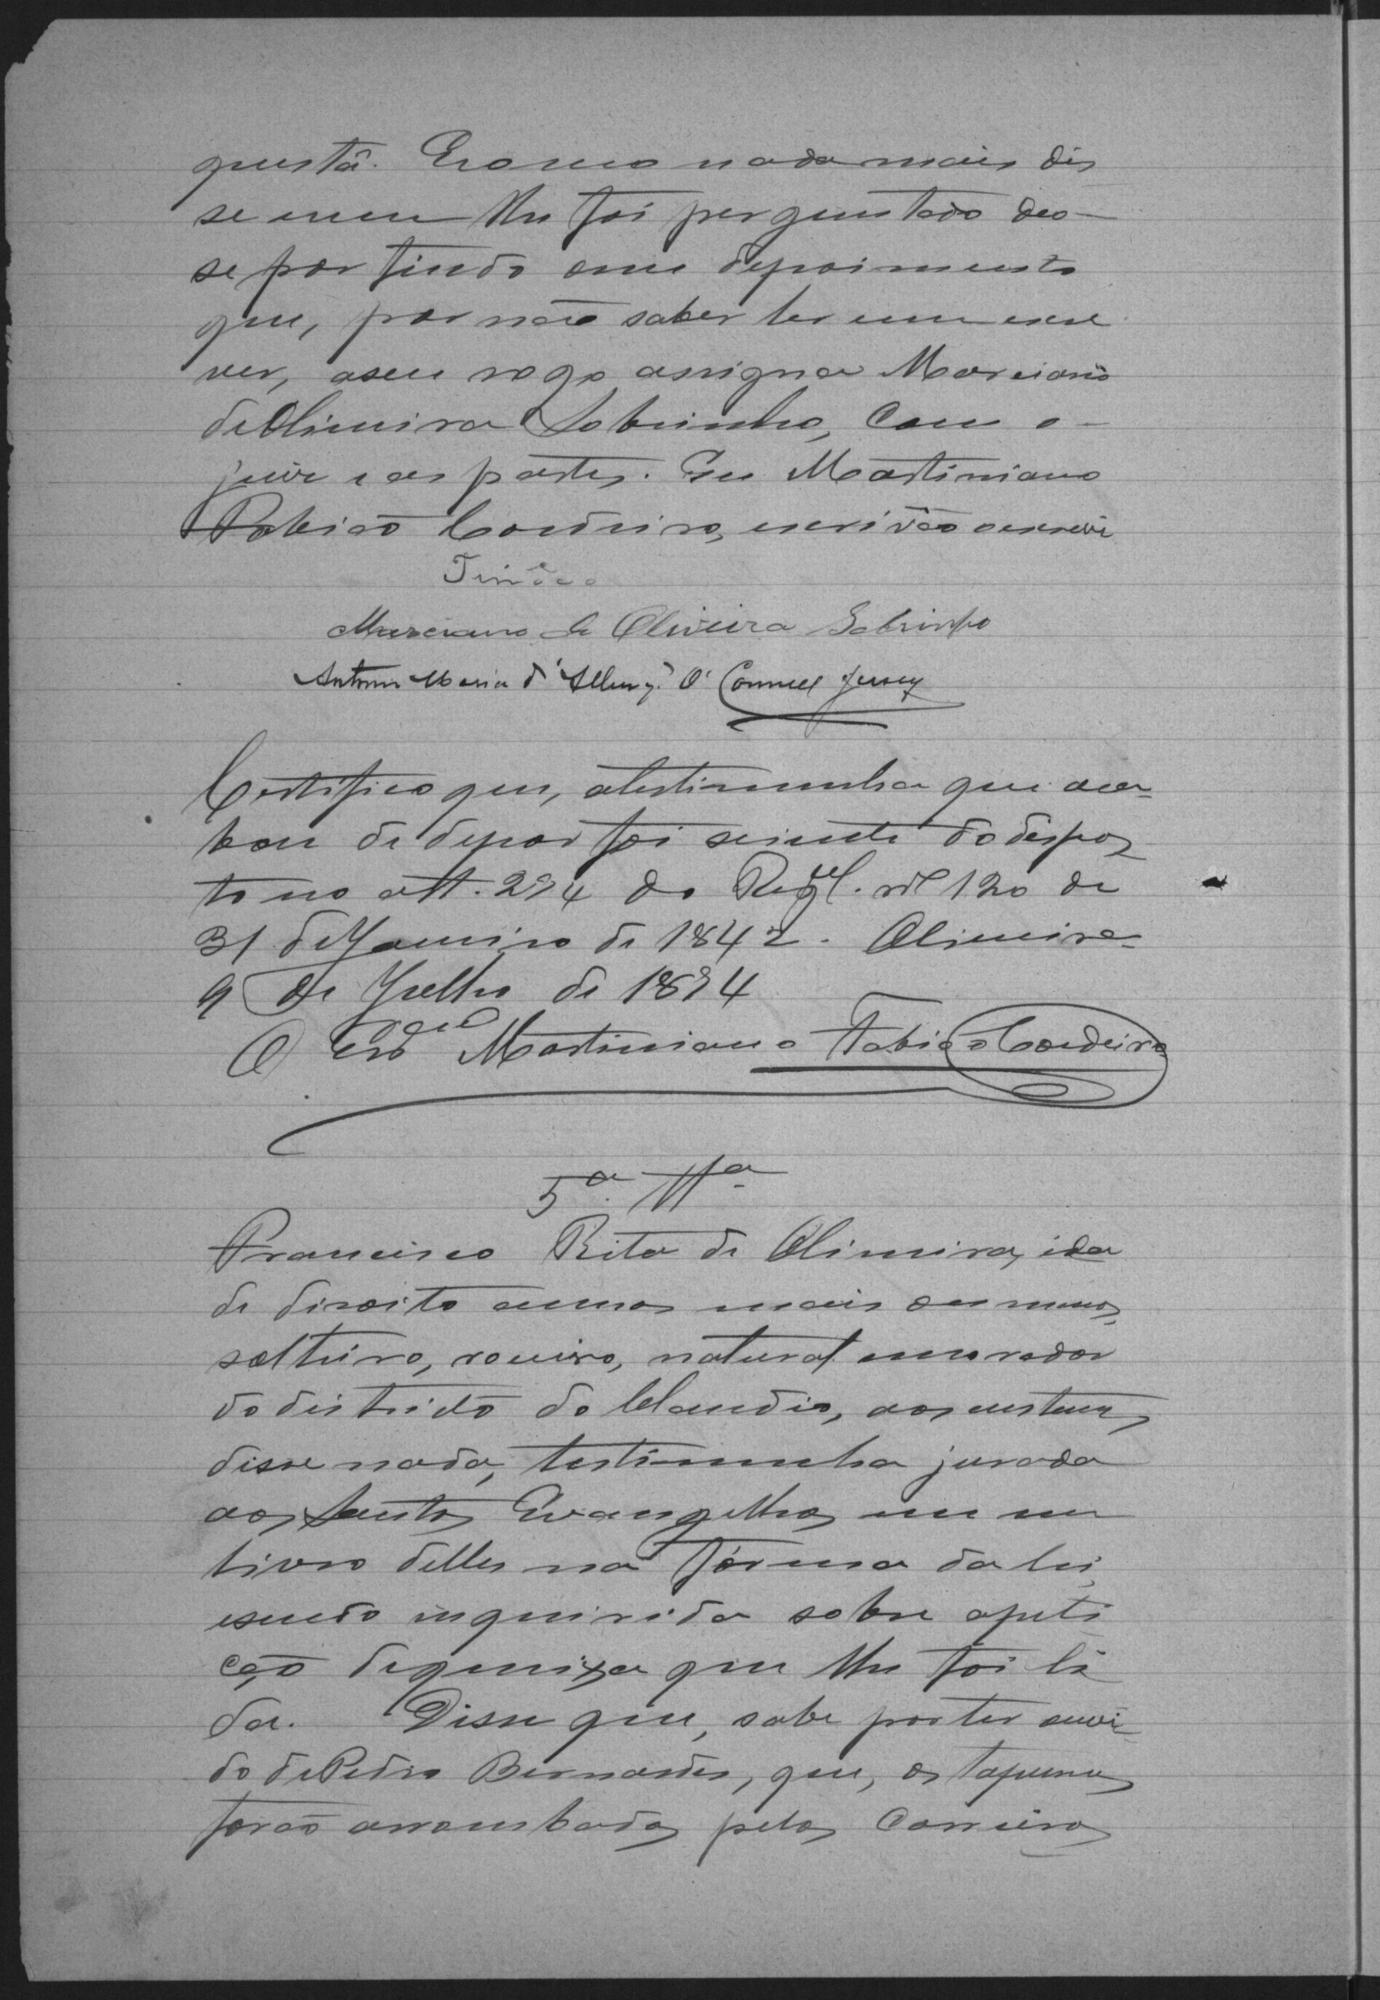 questã. E como nada mais dis
se nem lhe foi perguntado deo-
se por findo este depoimento
que, por não saber ler nem escre
ver, a seu rogo assigna Marciano
de Oliveira Sobrinho, com o
juiz e as partes. Eu Martiniano
Fabião Cordeiro, escrivão o escrevi
Marciano de Oliveira Sobrinho
Antonio Maria d' O' Connell Jersey
Certifico que, a testimunha que aca-
bou de depor foi sciente do dispos
to no art. 294 do Regul. nº 120 de
31 de Janeiro de 1842. Oliveira
9 de Julho de 1894
O Martiniano Fabião Cordeiro
5ª Ttª
Francisco Rita de Oliveira, ida
de dizoito annos mais ou menos,
solteiro, roceiro, natural e morador
do districto do Claudio, aos custumes
disse nada, testimunha jurada
aos Santos Evangelhos em um
livro delles na fórma da lei
e sendo inquirida sobre a peti
ção de queixa que lhe foi li
da. Disse que, sabe por ter ouvi-
do de Pedro Bernardes, que, os tapumes
forão arrombados pelos Carreiros